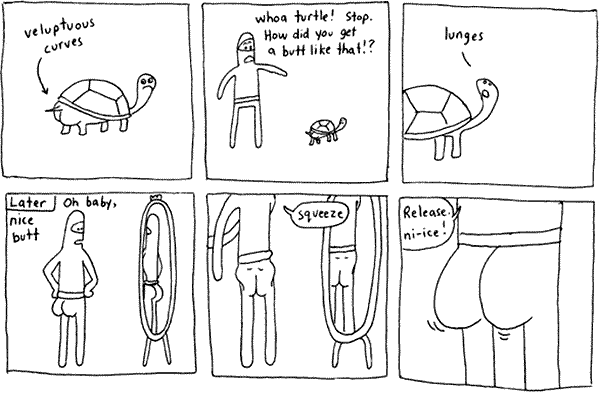 veluptuous
curves
whoa turtle! Stop.
How did you get
a butt like that!?
lunges
Later
Oh baby,
nice
butt
squeeze
Release.
ni-ice!